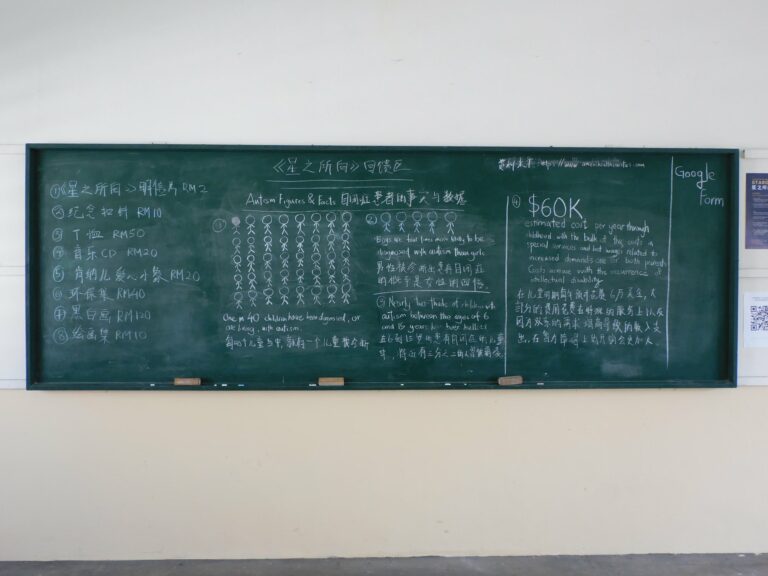 《星之所向》回馈区
①《星之所向》明信片 RM2
② 纪念扣针 RM10
③ T恤 RM50
④ 音乐CD RM20
⑤ 肯纳儿爱心小集 RM20
⑥ 环保集 RM40
⑦ 黑白画 RM120
⑧ 绘画集 RM10
Autism Figures & Facts 自闭症患者的事实与数据
①
One in 40 children have been diagnosed, or
are living, with autism.
每40个儿童当中,就有一个儿童被诊断
②
Boys are four times more likely to be
diagnosed with autism than girls.
男性被诊断出患有自闭症
的概率是女性的四倍
③ Nearly two thirds of children with
autism between the ages of 6
and 15 years have been bullied
在6到15岁的患有自闭症的儿童
中,将近有三分之二的人曾被霸凌
④
$60K
estimated cost per year through
childhood with the bulk of the costs in
special services and lost wages related to
increased demands one or both parents.
Costs increase with the occurrence of
intellectual disability.
在儿童时期每年预计花费6万美金,大
部分的费用花费在特殊的服务上以及
因为双亲的需求提高导致的收入支
出。在智力障碍上出其的会更加大
资料来源: https://www.
Google
Form